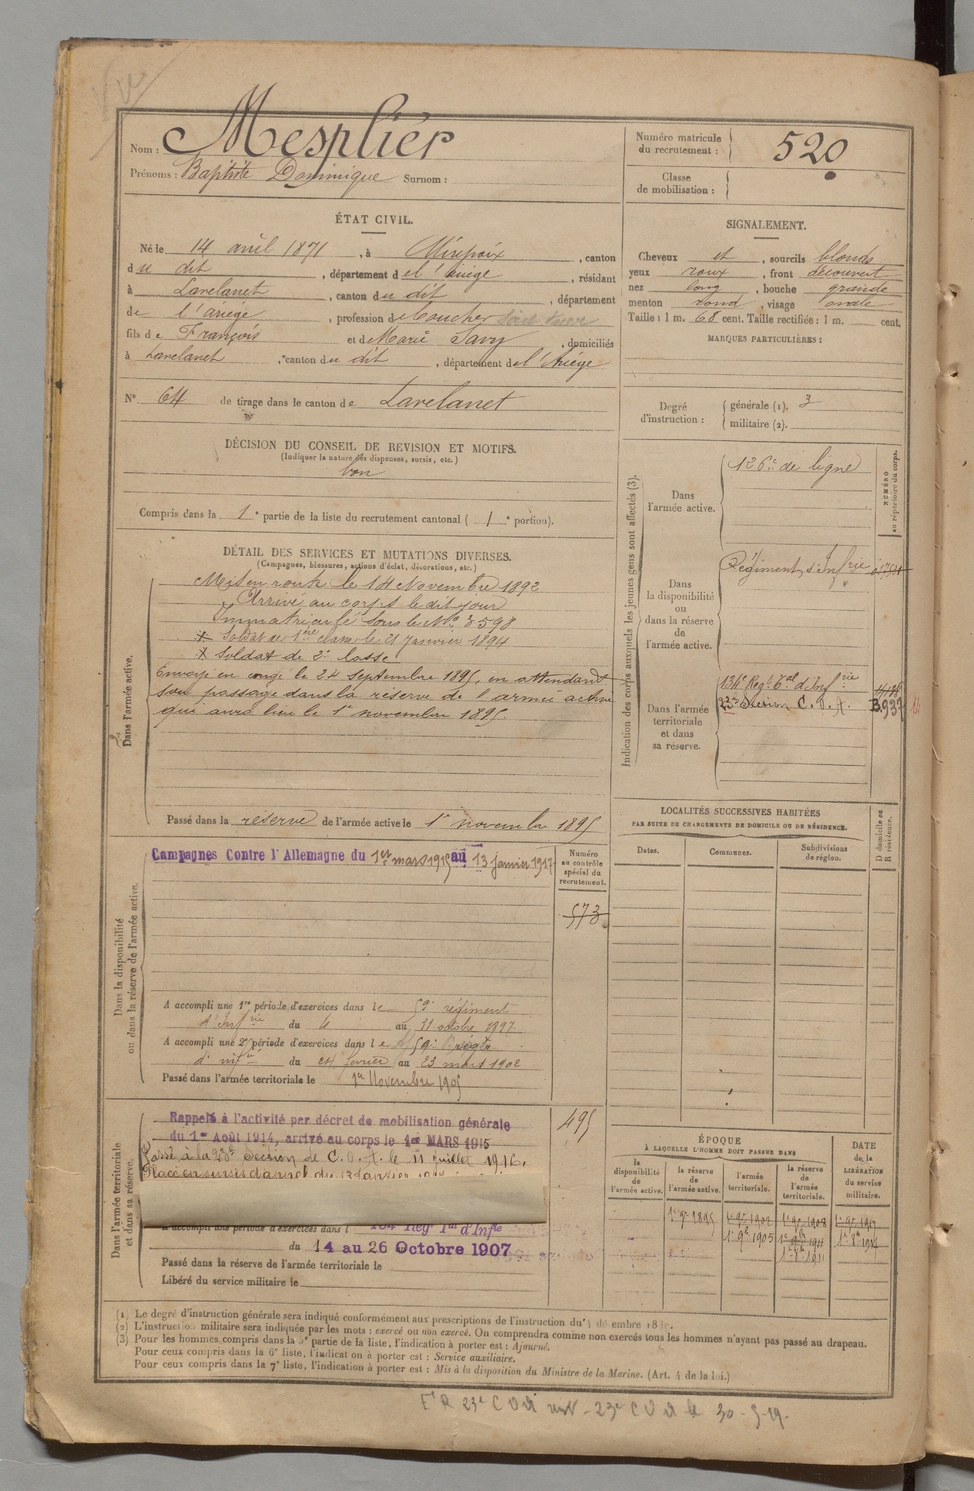 Nom : Mesplier
Prénoms : Baptiste Dominique Surnom :
Numéro matricule du recrutement : 520
Classe de mobilisation :
ÉTAT CIVIL.
Né le 14 avril 1871, à Mirepoix, canton
du dit, département de l'Ariège, résidant
à Lavelanet, canton du dit, département
de l'ariège, profession de
fils de François et de Marie Savy, domiciliés
à Lavelanet, canton du dit, département de l'Ariège
N° 64 de tirage dans le canton de Lavelanet
SIGNALEMENT.
Cheveux et, sourcils blonds
yeux roux, front découvert
nez long, bouche grande
menton rond, visage ovale
Taille : 1 m. 68 cent. Taille rectifiée : 1 m. cent.
MARQUES PARTICULIÈRES :
Degré d'instruction : générale (1). 3
militaire (2).
DÉCISION DU CONSEIL DE REVISION ET MOTIFS.
(Indiquer la nature des dispenses, sursis, etc.)
bon
Compris dans la 1e partie de la liste du recrutement cantonal ( 1e portion).
DÉTAIL DES SERVICES ET MUTATIONS DIVERSES.
(Campagnes, blessures, actions d'éclat, décorations, etc.)
Dans l'armée active.
Mis en route le 14 Novembre 1892
Arrivé au corps le dit jour
Immatriculé sous le No 3598
X Soldat de 1ère classe le 21 janvier 1894
X Soldat de 2e classe
Envoyé en congé le 24 septembre 1895, en attendant
son passage dans la réserve de l'armée active
qui aura lieu le 1er novembre 1895
Passé dans la réserve de l'armée active le 1er novembre 1895
Indication des corps auxquels les jeunes gens sont affectés (3).
NUMÉRO au répertoire du corps.
Dans l'armée active. 126e de ligne
Dans la disponibilité ou dans la réserve de l'armée active. Régiment d'Infrie
Dans l'armée territoriale et dans sa réserve. 134e Régt Tal d'Infrie
23e Section C. O. A.
LOCALITÉS SUCCESSIVES HABITÉES
PAR SUITE DE CHANGEMENTS DE DOMICILE OU DE RÉSIDENCE.
Dates. Communes. Subdivisions de région. D domicile ou R résidence.
Dans la disponibilité ou dans la réserve de l'armée active.
Campagnes Contre l'Allemagne du 1er mars 1915 au 13 janvier 1917
Numéro au contrôle spécial du recrutement.
573
A accompli une 1re période d'exercices dans le 59e régiment
d'Infrie du le au 11 octobre
A accompli une 2e période d'exercices dans le 59e Régt
d'infrie du 24 février au 23 mars 1902
Passé dans l'armée territoriale le 1er Novembre 1905
Dans l'armée territoriale et dans sa réserve.
495
Rappelé à l'activité par décret de mobilisation générale
du 1er Août 1914, arrivé au corps le 1er MARS 1915
Passé à la 23e Section de C. O. A. le 11 juillet 1916.
Placé en sursis d'appel du 13 Janvier
A accompli une période d'exercices dans le 134 Rég Tal d'Infie
du 14 au 26 Octobre 1907
Passé dans la réserve de l'armée territoriale le
Libéré du service militaire le
ÉPOQUE
À LAQUELLE L'HOMME DOIT PASSER DANS
la disponibilité de l'armée active.
la réserve de l'armée active.
l'armée territoriale.
la réserve de l'armée territoriale.
DATE de la LIBÉRATION du service militaire.
(1) Le degré d'instruction générale sera indiqué conformément aux prescriptions de l'instruction du
(2) L'instruction militaire sera indiquée par les mots : exercé ou non exercé. On comprendra comme non exercés tous les hommes n'ayant pas passé au drapeau.
(3) Pour les hommes compris dans la 5e partie de la liste, l'indication à porter est : Ajourné.
Pour ceux compris dans la 6e liste, l'indication à porter est : Service auxiliaire.
Pour ceux compris dans la 7e liste, l'indication à porter est : Mis à la disposition du Ministre de la Marine. (Art. 4 de la loi.)